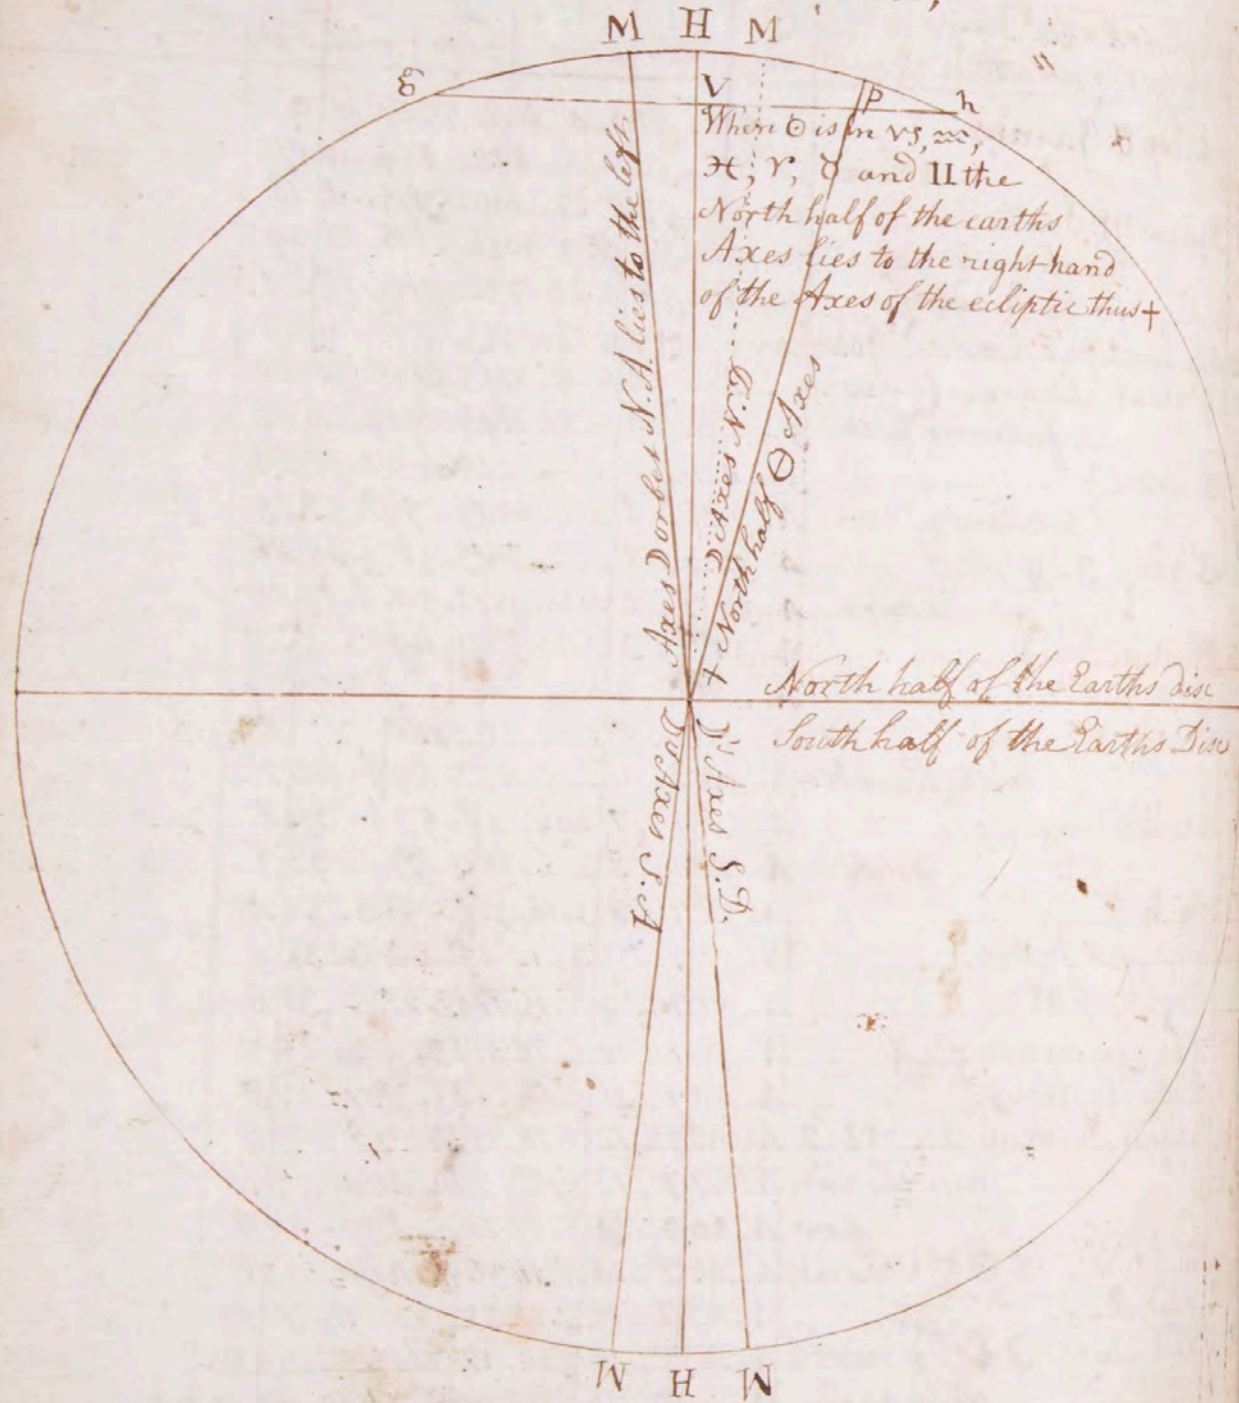 M H M
g
V
P
h
When ☉ is in ♑, ♒,
♓, ♈, ♉ and ♊ the
North half of the earths
Axes lies to the right hand
of the Axes of the ecliptic thus +
Axes ☽ orbet N. A. lies to the left
Axes N. D.
+ North half ⊖ Axes
North half of the Earths disc
South half of the Earths Disc
Do Axes S. A
☽'s Axes S. D.
M H M